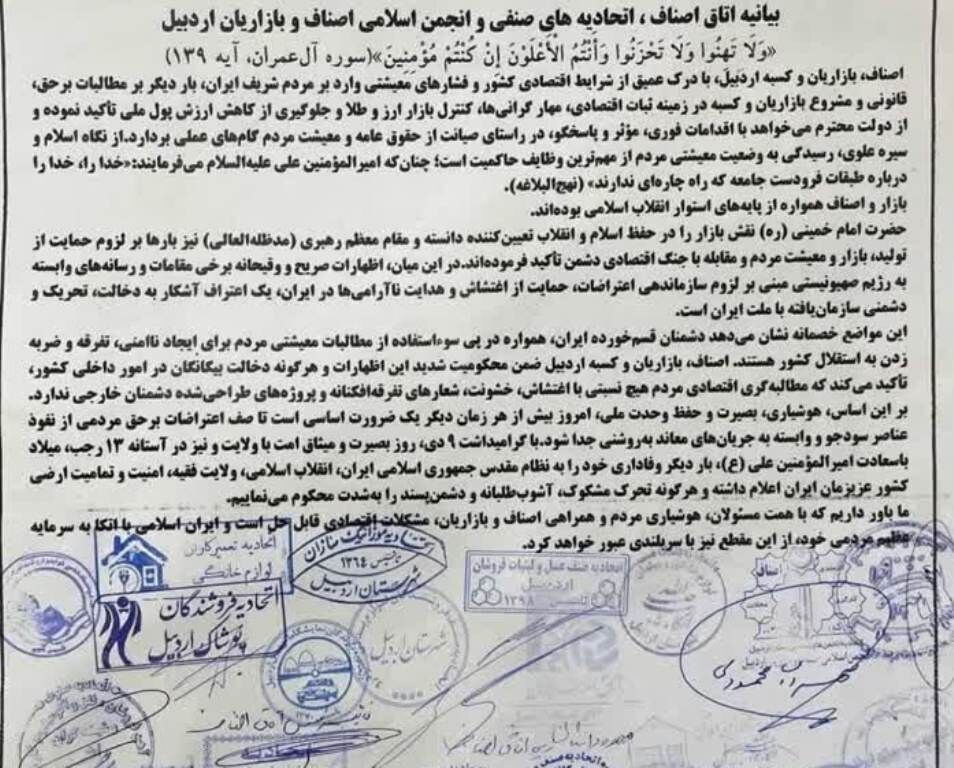 بیانیه اتاق اصناف ، اتحادیه های صنفی و انجمن اسلامی اصناف و بازاریان اردبیل
«وَلَا تَهِنُوا وَلَا تَحْزَنُوا وَأَنْتُمُ الْأَعْلَوْنَ إِنْ كُنْتُمْ مُؤْمِنِينَ»(سوره آل‌عمران، آیه ۱۳۹)
اصناف، بازاریان و کسبه اردبیل، با درک عمیق از شرایط اقتصادی کشور و فشارهای معیشتی وارد بر مردم شریف ایران، بار دیگر بر مطالبات برحق،
قانونی و مشروع بازاریان و کسبه در زمینه ثبات اقتصادی، مهار گرانی‌ها، کنترل بازار ارز و طلا و جلوگیری از کاهش ارزش پول ملی تأکید نموده و
از دولت محترم می‌خواهد با اقدامات فوری، مؤثر و پاسخگو، در راستای صیانت از حقوق عامه و معیشت مردم گام‌های عملی بردارد.از نگاه اسلام و
سیره علوی، رسیدگی به وضعیت معیشتی مردم از مهم‌ترین وظایف حاکمیت است؛ چنان‌که امیرالمؤمنین علی علیه‌السلام می‌فرمایند:«خدا را، خدا را
درباره طبقات فرودست جامعه که راه چاره‌ای ندارند» (نهج‌البلاغه).
بازار و اصناف همواره از پایه‌های استوار انقلاب اسلامی بوده‌اند.
حضرت امام خمینی (ره) نقش بازار را در حفظ اسلام و انقلاب تعیین‌کننده دانسته و مقام معظم رهبری (مدظله‌العالی) نیز بارها بر لزوم حمایت از
تولید، بازار و معیشت مردم و مقابله با جنگ اقتصادی دشمن تأکید فرموده‌اند.در این میان، اظهارات صریح و وقیحانه برخی مقامات و رسانه‌های وابسته
به رژیم صهیونیستی مبنی بر لزوم سازماندهی اعتراضات، حمایت از اغتشاش و هدایت ناآرامی‌ها در ایران، یک اعتراف آشکار به دخالت، تحریک و
دشمنی سازمان‌یافته با ملت ایران است.
این مواضع خصمانه نشان می‌دهد دشمنان قسم‌خورده ایران، همواره در پی سوءاستفاده از مطالبات معیشتی مردم برای ایجاد ناامنی، تفرقه و ضربه
زدن به استقلال کشور هستند. اصناف، بازاریان و کسبه اردبیل ضمن محکومیت شدید این اظهارات و هرگونه دخالت بیگانگان در امور داخلی کشور،
تأکید می‌کند که مطالبه‌گری اقتصادی مردم هیچ نسبتی با اغتشاش، خشونت، شعارهای تفرقه‌افکنانه و پروژه‌های طراحی‌شده دشمنان خارجی ندارد.
بر این اساس، هوشیاری، بصیرت و حفظ وحدت ملی، امروز بیش از هر زمان دیگر یک ضرورت اساسی است تا صف اعتراضات برحق مردمی از نفوذ
عناصر سودجو و وابسته به جریان‌های معاند به‌روشنی جدا شود.با گرامیداشت ۹ دی، روز بصیرت و میثاق امت با ولایت و نیز در آستانه ۱۳ رجب، میلاد
باسعادت امیرالمؤمنین علی (ع)، بار دیگر وفاداری خود را به نظام مقدس جمهوری اسلامی ایران، انقلاب اسلامی، ولایت فقیه، امنیت و تمامیت ارضی
کشور عزیزمان ایران اعلام داشته و هرگونه تحرک مشکوک، آشوب‌طلبانه و دشمن‌پسند را به‌شدت محکوم می‌نماییم.
ما باور داریم که با همت مسئولان، هوشیاری مردم و همراهی اصناف و بازاریان، مشکلات اقتصادی قابل حل است و ایران اسلامی با اتکا به سرمایه
عظیم مردمی خود، از این مقطع نیز با سربلندی عبور خواهد کرد.
اتحادیه تعمیرکاران
لوازم خانگی
اتحادیه فروشندگان
پوشاک اردبیل
اتحادیه موزائیک سازان
تاسیس ۱۳۶۴
شهرستان اردبیل
اتحادیه صنف عسل و لبنیات فروشان
اردبیل
تاسیس ۱۳۹۸
شهرستان اردبیل
اصناف